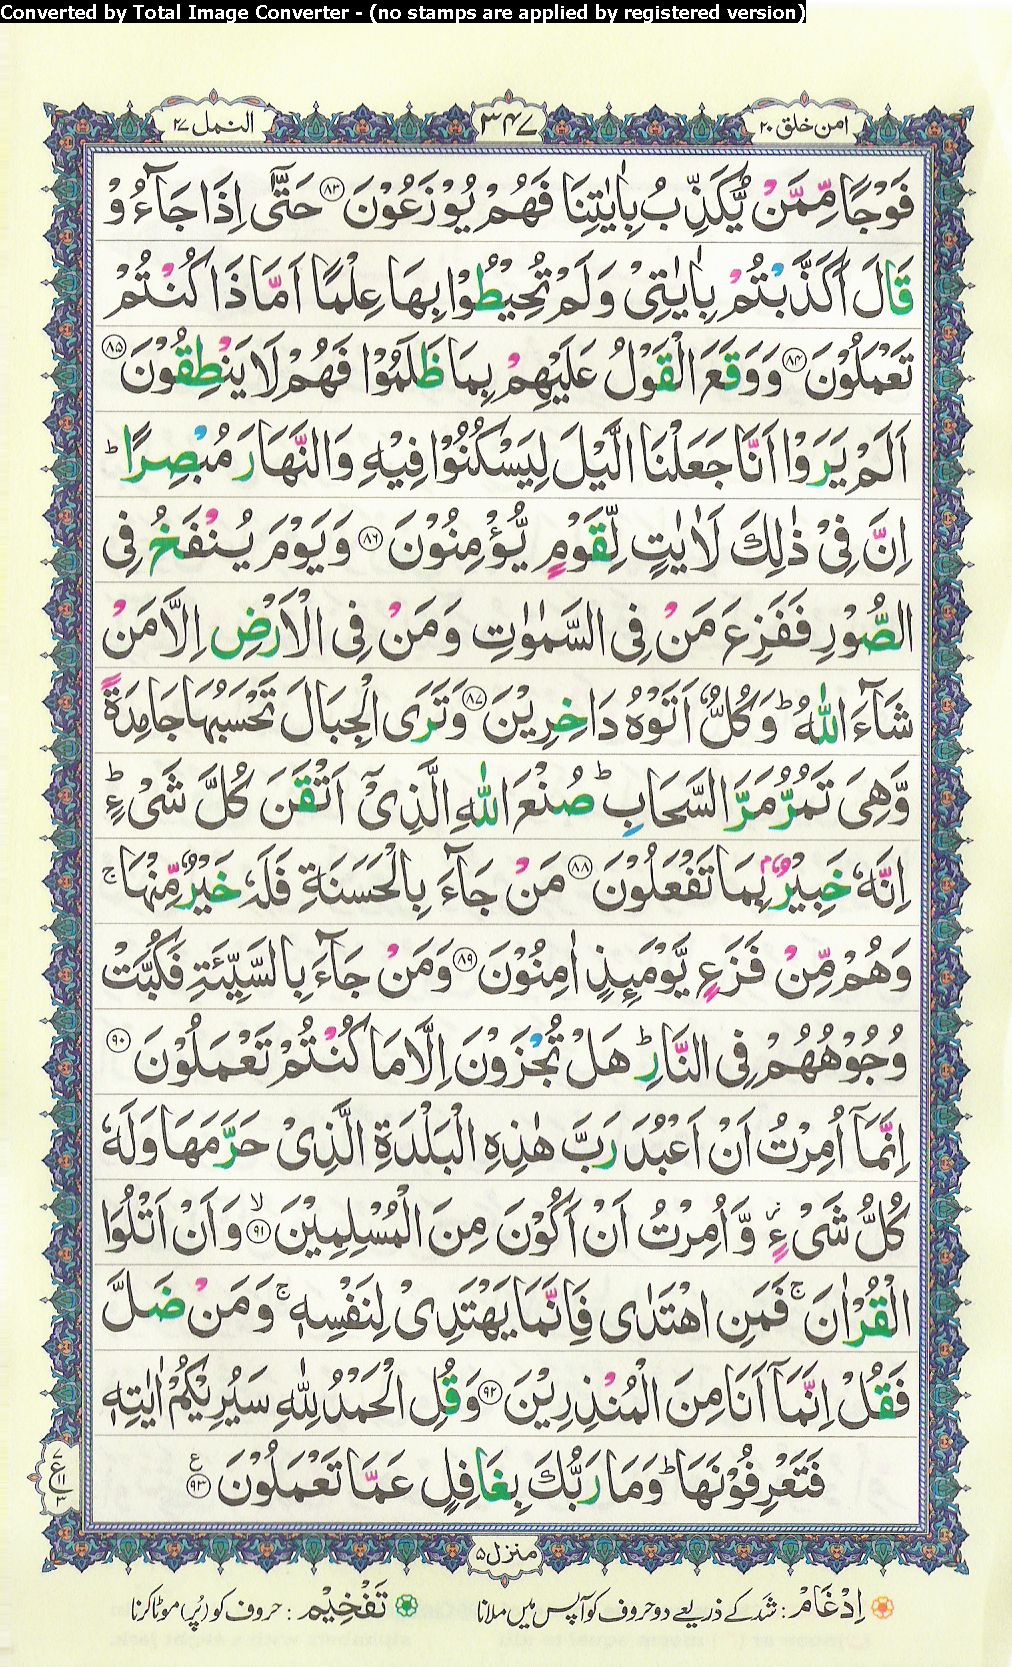 Converted by Total Image Converter - (no stamps are applied by registered version)
امن خلق ٢٠
٣٤٧
النمل ٢٧
فَوْجًا مِّمَّنْ يُّكَذِّبُ بِاٰيٰتِنَا فَهُمْ يُوْزَعُوْنَ ﴿٨٣﴾ حَتّٰٓى اِذَا جَآءُوْ
قَالَ اَكَذَّبْتُمْ بِاٰيٰتِيْ وَلَمْ تُحِيْطُوْا بِهَا عِلْمًا اَمَّاذَا كُنْتُمْ
تَعْمَلُوْنَ ﴿٨٤﴾ وَوَقَعَ الْقَوْلُ عَلَيْهِمْ بِمَا ظَلَمُوْا فَهُمْ لَا يَنْطِقُوْنَ ﴿٨٥﴾
اَلَمْ يَرَوْا اَنَّا جَعَلْنَا الَّيْلَ لِيَسْكُنُوْا فِيْهِ وَالنَّهَارَ مُبْصِرًا ؕ
اِنَّ فِيْ ذٰلِكَ لَاٰيٰتٍ لِّقَوْمٍ يُّؤْمِنُوْنَ ﴿٨٦﴾ وَيَوْمَ يُنْفَخُ فِى
الصُّوْرِ فَفَزِعَ مَنْ فِى السَّمٰوٰتِ وَمَنْ فِى الْاَرْضِ اِلَّا مَنْ
شَآءَ اللّٰهُ ؕ وَكُلٌّ اَتَوْهُ دَاخِرِيْنَ ﴿٨٧﴾ وَتَرَى الْجِبَالَ تَحْسَبُهَا جَامِدَةً
وَّهِىَ تَمُرُّ مَرَّ السَّحَابِ ؕ صُنْعَ اللّٰهِ الَّذِيْٓ اَتْقَنَ كُلَّ شَيْءٍ ؕ
اِنَّهٗ خَبِيْرٌۢ بِمَا تَفْعَلُوْنَ ﴿٨٨﴾ مَنْ جَآءَ بِالْحَسَنَةِ فَلَهٗ خَيْرٌ مِّنْهَا ۚ
وَهُمْ مِّنْ فَزَعٍ يَّوْمَئِذٍ اٰمِنُوْنَ ﴿٨٩﴾ وَمَنْ جَآءَ بِالسَّيِّئَةِ فَكُبَّتْ
وُجُوْهُهُمْ فِى النَّارِ ؕ هَلْ تُجْزَوْنَ اِلَّا مَا كُنْتُمْ تَعْمَلُوْنَ ﴿٩٠﴾
اِنَّمَآ اُمِرْتُ اَنْ اَعْبُدَ رَبَّ هٰذِهِ الْبَلْدَةِ الَّذِيْ حَرَّمَهَا وَلَهٗ
كُلُّ شَيْءٍ وَّاُمِرْتُ اَنْ اَكُوْنَ مِنَ الْمُسْلِمِيْنَ ﴿٩١﴾ ۙ وَاَنْ اَتْلُوَا
الْقُرْاٰنَ ۚ فَمَنِ اهْتَدٰى فَاِنَّمَا يَهْتَدِيْ لِنَفْسِهٖ ۚ وَمَنْ ضَلَّ
فَقُلْ اِنَّمَآ اَنَا مِنَ الْمُنْذِرِيْنَ ﴿٩٢﴾ وَقُلِ الْحَمْدُ لِلّٰهِ سَيُرِيْكُمْ اٰيٰتِهٖ
فَتَعْرِفُوْنَهَا ؕ وَمَا رَبُّكَ بِغَافِلٍ عَمَّا تَعْمَلُوْنَ ﴿٩٣﴾ ع
٧ ع ١١ ٣
منزل ۵
اِدْغَامْ : شَد کے ذریعے دو حروف کو آپس میں ملانا تَفْخِیْم : حروف کو (پُر) موٹا کرنا